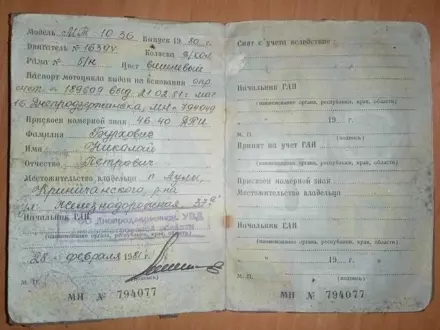 Модель МТ 10 36 Выпуск 19 80 г.
Двигатель № 16394 Коляска
Рама № б/н Цвет вишневый
Паспорт мотоцикла выдан на основании спр
счет № 189609 выд 21.02.81г маг
Днепродзержинска, МН № 794049
Присвоен номерной знак 46-40 ЯПИ
Фамилия
Имя Николай
Отчество Петрович
Местожительство владельца п. Аулы,
Криничанского р-на
ул. Железнодорожная
Начальник ГАИ
Днепродзержинского УВД
(наименование органа, республики, края, области)
28 февраля 1981г.
М. П.
МН № 794077
Снят с учета вследствие:
Начальник ГАИ
(наименование органа, республики, края, области)
19 г.
М. П.
Принят на учет ГАИ
(наименование органа, республики, края, области)
Присвоен номерной знак
Местожительство владельца
Начальник ГАИ
(наименование органа, республики, края, области)
19 г.
М. П.
МН № 794077